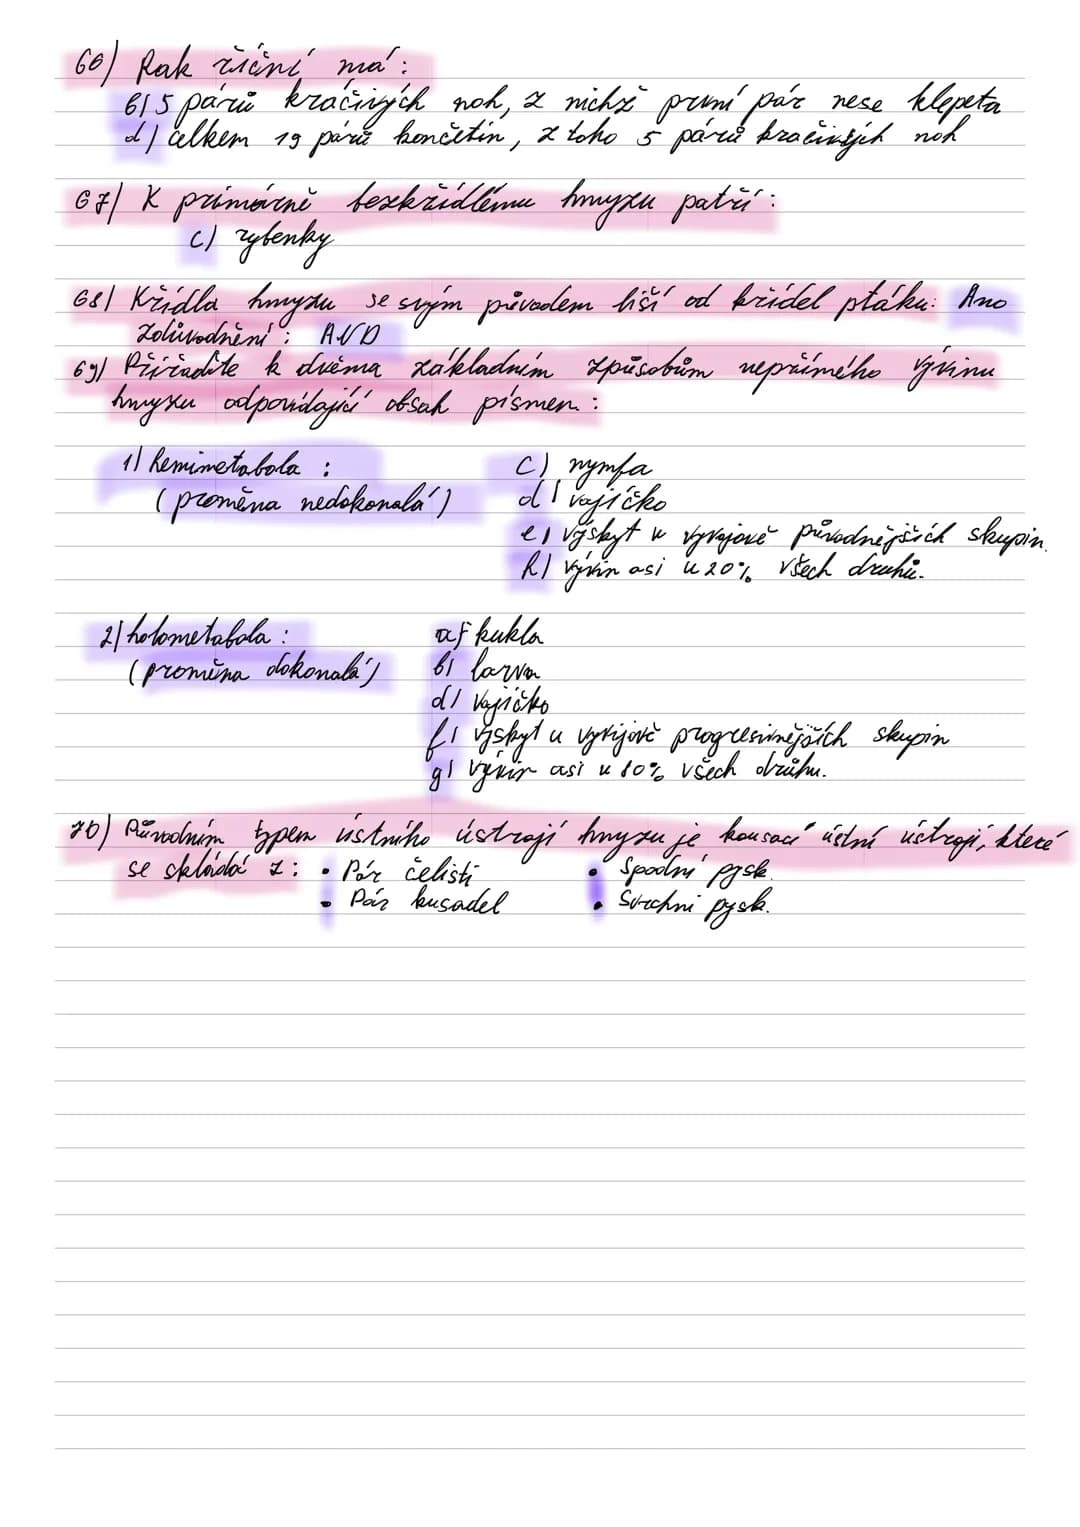 66) Rak říční má:
b) 5 párů kráčivých noh, z nichž první pár nese klepeta
d) celkem 19 párů končetin, z toho 5 párů kráčivých noh
67) K primárně bezkřídlému hmyzu patří:
c) rybenky
68) Křídla hmyzu se svým původem liší od křídel ptáku: Ano
Zdůvodnění: AVD
69) Přiřadite k dvěma základním způsobům nepřímého vývinu
hmyzu odpovídající obsah písmen:
1) hemimetabola :
c) nymfa
(proměna nedokonalá)
d) vajíčko
e) výskyt u vývojově původnějších skupin.
h) vývin asi u 20% všech druhů.
2) holometabola :
a) kukla
(proměna dokonalá)
b) larva
d) vajíčko
f) výskyt u vývijově progresivnějších skupin
g) vývin asi u 80% všech druhu.
70) Původním typem ústního ústrojí hmyzu je kousací ústní ústrojí, které
se skládá z: • Pár čelisti • Spodní pysk.
• Pár kusadel • Svrchni pysk.